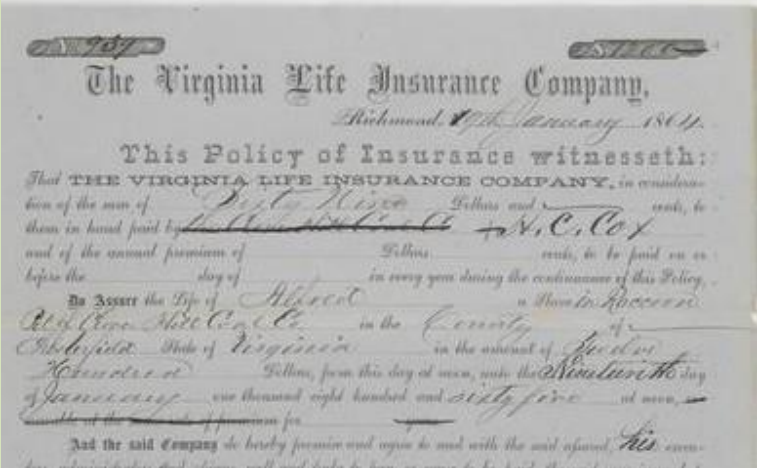 No 937 $1200
The Virginia Life Insurance Company,
Richmond, 19th January 1864.
This Policy of Insurance witnesseth:
That THE VIRGINIA LIFE INSURANCE COMPANY, in considera-
tion of the sum of Sixty Nine Dollars and cents, to
them in hand paid by H. C. Cox
and of the annual premium of Dollars cents, to be paid on or
before the day of in every year during the continuance of this Policy,
Do Assure the Life of Alfred a Slave in Raccoon
Pit of Clover Hill Coal Co in the County of
Chesterfield State of Virginia in the amount of Twelve
Hundred Dollars, from this day at noon, unto the Nineteenth day
of January one thousand eight hundred and sixty five at noon,
And the said Company do hereby promise and agree to and with the said assured, his execu-